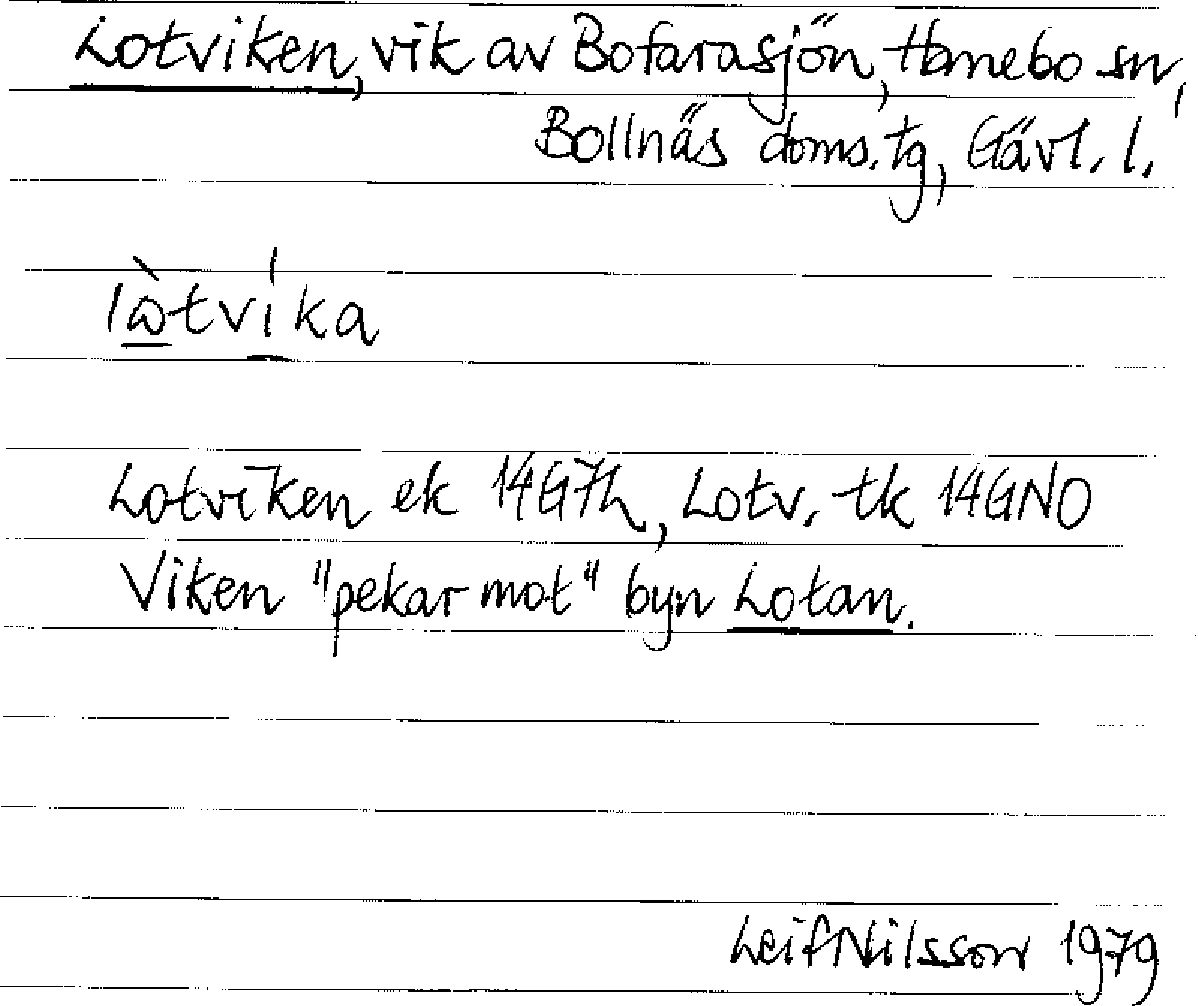 Lotviken, vik av Bofarasjön, Hanebo sn,
Bollnäs doms.tg, Gävl. l.
lὼtvíka
Lotviken ek 14G7h, Lotv. tk 14GNO
Viken "pekar mot" byn Lotan.
Leif Nilsson 1979